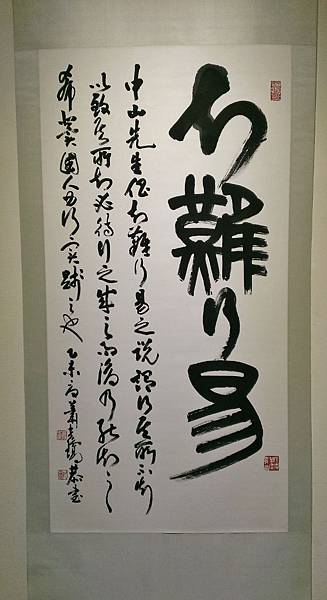 知難行易
中山先生倡知難行易之說謂行其所不知
以致其所知必待行之成之而後乃能知之
希冀國人力行實踐之也 乙未 蕭 恭書